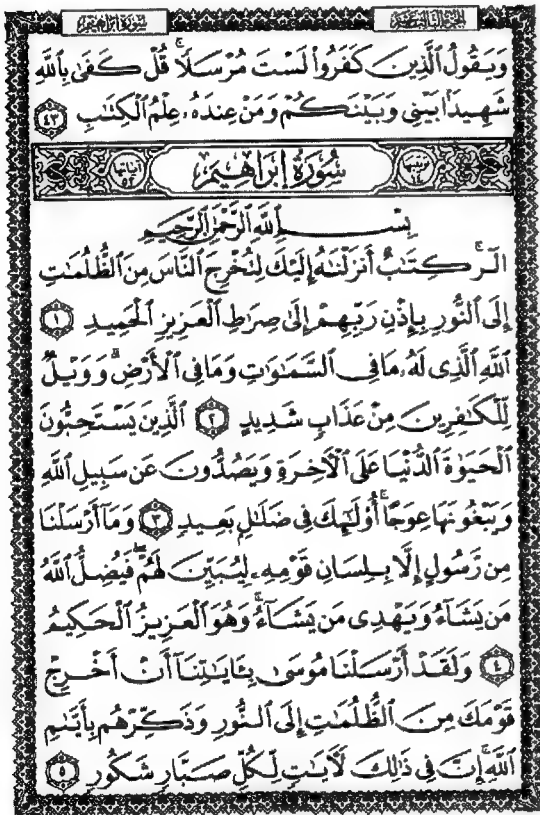 سُورَةُ إبْرَاهِيم
وَيَقُولُ ٱلَّذِينَ كَفَرُوا۟ لَسْتَ مُرْسَلًاۚ قُلْ كَفَىٰ بِٱللَّهِ
شَهِيدًۢا بَيْنِى وَبَيْنَكُمْ وَمَنْ عِندَهُۥ عِلْمُ ٱلْكِتَٰبِ ٤٣
سُورَةُ إِبْرَاهِيمَ
بِسْمِ ٱللَّهِ ٱلرَّحْمَٰنِ ٱلرَّحِيمِ
الٓرۚ كِتَٰبٌ أَنزَلْنَٰهُ إِلَيْكَ لِتُخْرِجَ ٱلنَّاسَ مِنَ ٱلظُّلُمَٰتِ
إِلَى ٱلنُّورِ بِإِذْنِ رَبِّهِمْ إِلَىٰ صِرَٰطِ ٱلْعَزِيزِ ٱلْحَمِيدِ ١
ٱللَّهِ ٱلَّذِى لَهُۥ مَا فِى ٱلسَّمَٰوَٰتِ وَمَا فِى ٱلْأَرْضِۗ وَوَيْلٌ
لِّلْكَٰفِرِينَ مِنْ عَذَابٍ شَدِيدٍ ٢ ٱلَّذِينَ يَسْتَحِبُّونَ
ٱلْحَيَوٰةَ ٱلدُّنْيَا عَلَى ٱلْءَاخِرَةِ وَيَصُدُّونَ عَن سَبِيلِ ٱللَّهِ
وَيَبْغُونَهَا عِوَجًاۚ أُو۟لَٰٓئِكَ فِى ضَلَٰلٍۭ بَعِيدٍ ٣ وَمَآ أَرْسَلْنَا
مِن رَّسُولٍ إِلَّا بِلِسَانِ قَوْمِهِۦ لِيُبَيِّنَ لَهُمْۖ فَيُضِلُّ ٱللَّهُ
مَن يَشَآءُ وَيَهْدِى مَن يَشَآءُۚ وَهُوَ ٱلْعَزِيزُ ٱلْحَكِيمُ
٤ وَلَقَدْ أَرْسَلْنَا مُوسَىٰ بِـَٔايَٰتِنَآ أَنْ أَخْرِجْ
قَوْمَكَ مِنَ ٱلظُّلُمَٰتِ إِلَى ٱلنُّورِ وَذَكِّرْهُم بِأَيَّىٰمِ
ٱللَّهِۚ إِنَّ فِى ذَٰلِكَ لَءَايَٰتٍ لِّكُلِّ صَبَّارٍ شَكُورٍ ٥